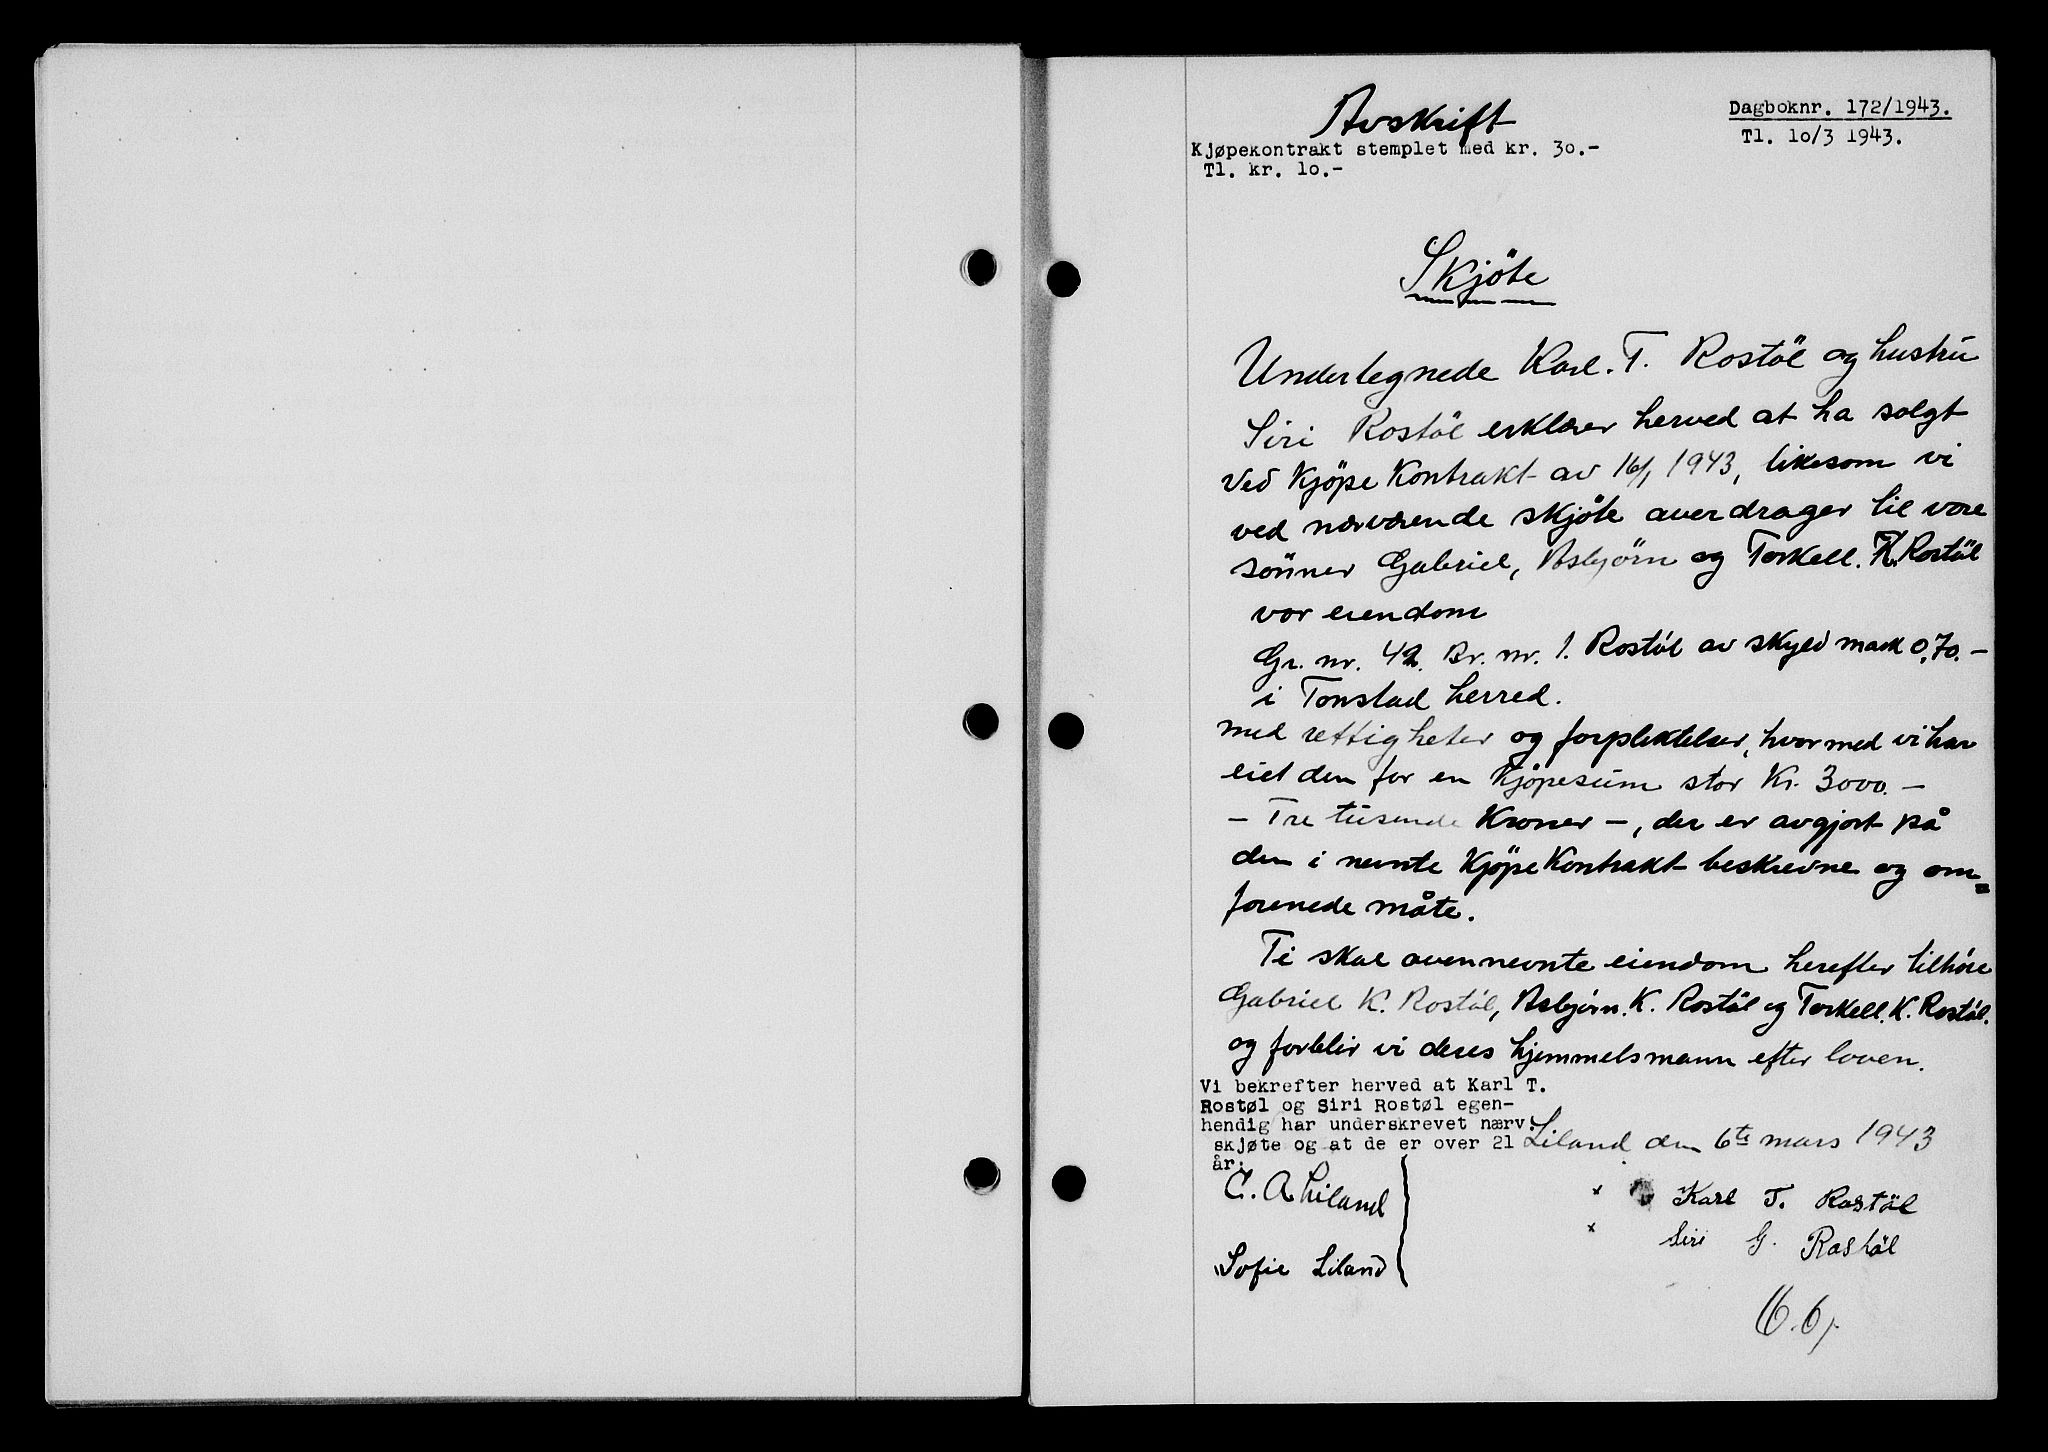 Avskrift
Dagboknr. 172/1943.
Tl. lo/3 1943.
Kjøpekontrakt stemplet med kr. 3o.-
Tl. kr. lo.-
Skjöte
Undertegnede Karl. T. Rostöl og hustru
Siri Rostöl erklærer herved at ha solgt
ved Kjöpe Kontrakt av 16/1 1943, likesom vi
ved nærværende skjöte averdrager til vore
sönner Gabriel, Asbjörn og Torkell. K. Rostöl
vor eiendom
Gr. nr. 42. Br. nr. 1. Rostöl av skyld mark 0,70.-
i Tonstad herred.
med rettigheter og forpliktelser, hvormed vi har
eiet den for en Kjöpesum stor Kr. 3000.-
- Tre tusende Kroner -, der er avgjort på
den i nevnte Kjöpe Kontrakt beskrevne og om=
forenede måte.
Ti skal ovennevnte eiendom herefter tilhöre
Gabriel K. Rostöl, Asbjörn. K. Rostöl og Torkell. K. Rostöl.
og forblir vi deres hjemmelsmann efter loven.
Vi bekrefter herved at Karl T.
Rostøl og Siri Rostøl egen-
hendig har underskrevet nærv.
skjøte og at de er over 21
år.
Liland den 6te mars 1943
C. A. Liland
x Karl T. Rostöl
x Siri G. Rostöl
Sofie Liland